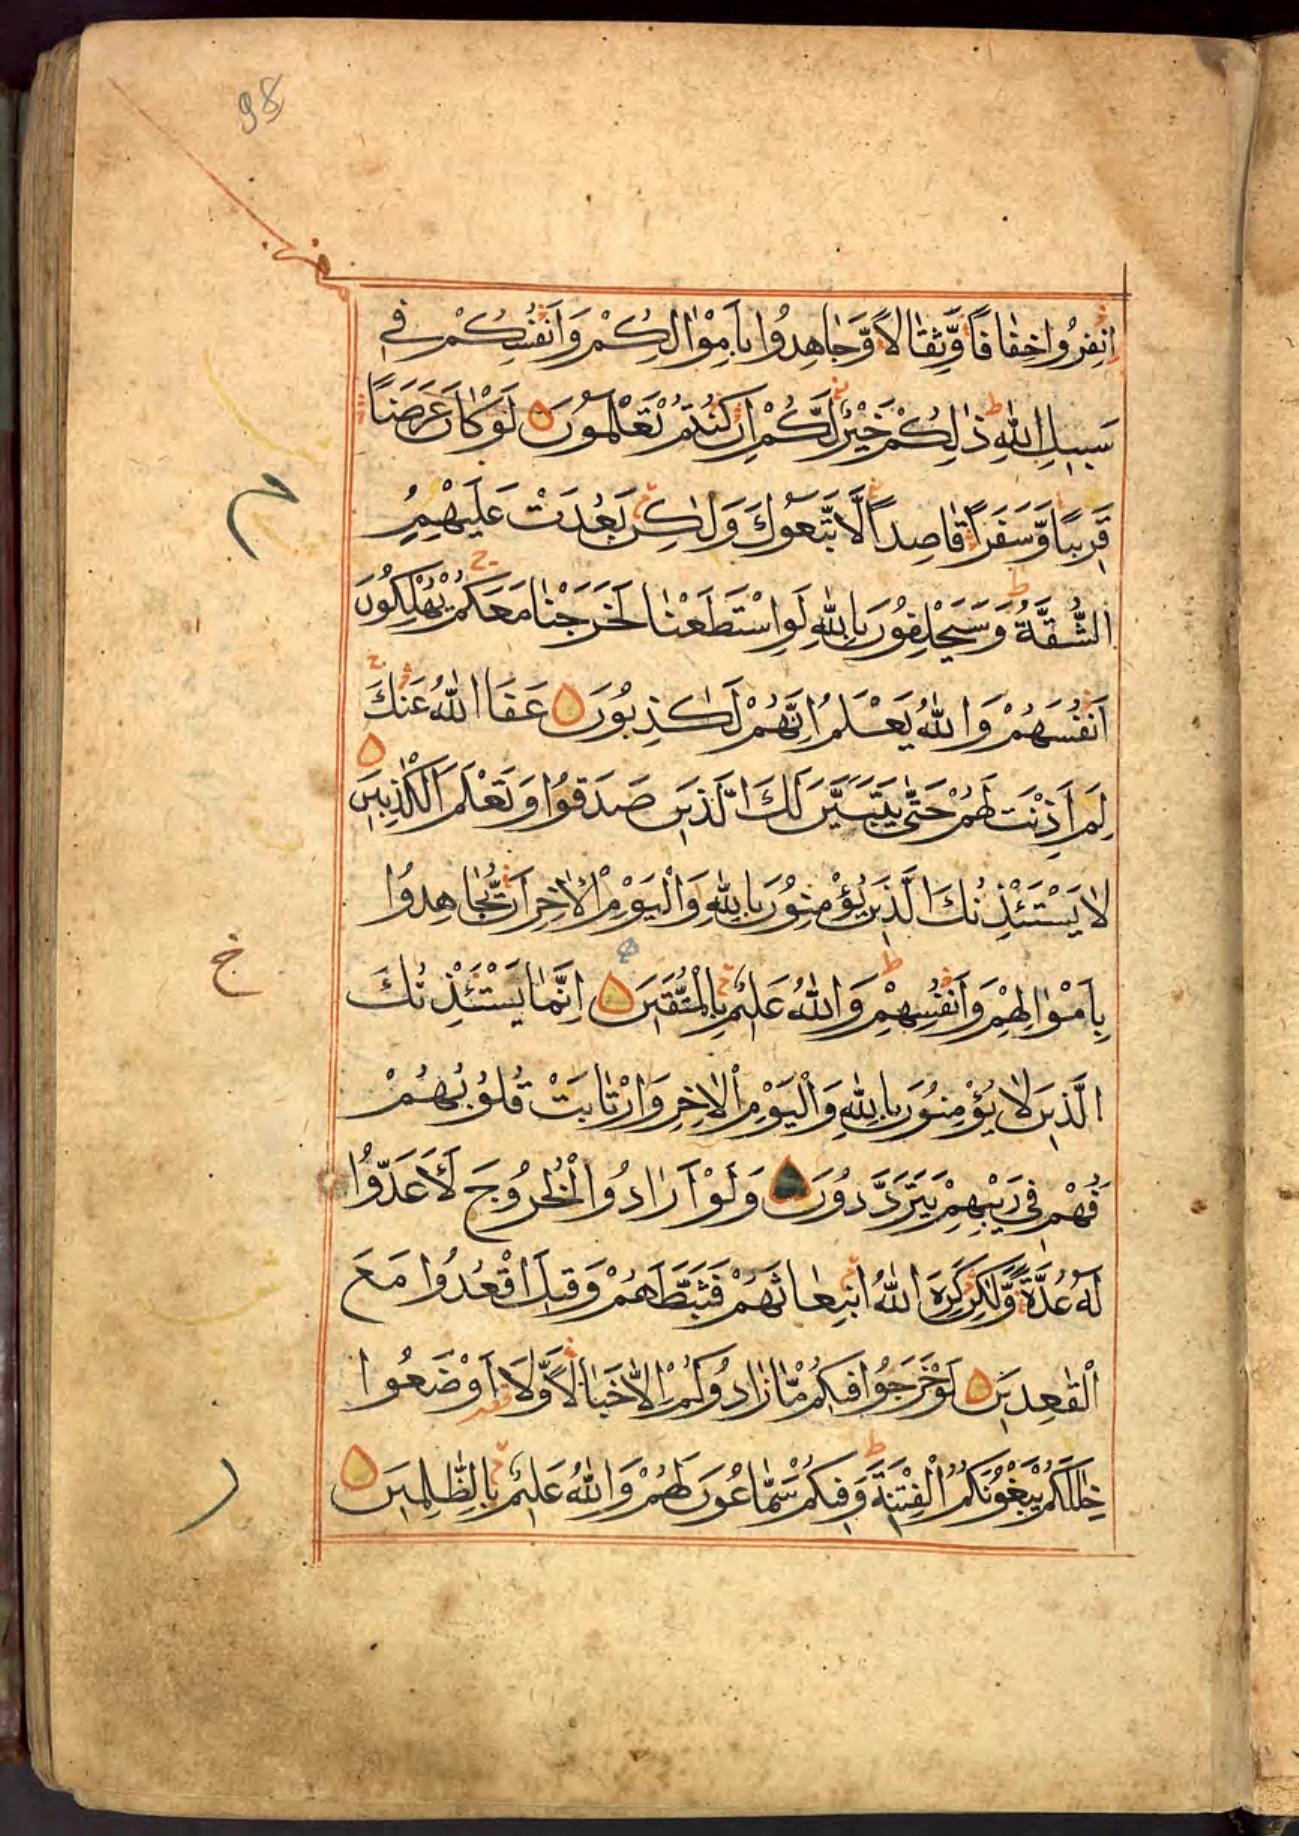 98
اِنْفِرُوا خِفَافًا وَّثِقَالًا وَّجَاهِدُوا بِاَمْوَالِكُمْ وَاَنْفُسِكُمْ فِى
سَبِيلِ اللهِ ذٰلِكُمْ خَيْرٌ لَّكُمْ اِنْ كُنْتُمْ تَعْلَمُونَ لَوْ كَانَ عَرَضًا
قَرِيبًا وَّسَفَرًا قَاصِدًا لَّاتَّبَعُوكَ وَلٰكِنْ بَعُدَتْ عَلَيْهِمُ
الشُّقَّةُ وَسَيَحْلِفُونَ بِاللهِ لَوِاسْتَطَعْنَا لَخَرَجْنَا مَعَكُمْ يُهْلِكُونَ
اَنْفُسَهُمْ وَاللهُ يَعْلَمُ اِنَّهُمْ لَكٰذِبُونَ عَفَا اللهُ عَنْكَ
لِمَ اَذِنْتَ لَهُمْ حَتّٰى يَتَبَيَّنَ لَكَ الَّذِينَ صَدَقُوا وَتَعْلَمَ الْكٰذِبِينَ
لَا يَسْتَئْذِنُكَ الَّذِينَ يُؤْمِنُونَ بِاللهِ وَالْيَوْمِ الْاٰخِرِ اَنْ يُّجَاهِدُوا
بِاَمْوَالِهِمْ وَاَنْفُسِهِمْ وَاللهُ عَلِيمٌ بِالْمُتَّقِينَ اِنَّمَا يَسْتَئْذِنُكَ
الَّذِينَ لَا يُؤْمِنُونَ بِاللهِ وَالْيَوْمِ الْاٰخِرِ وَارْتَابَتْ قُلُوبُهُمْ
فَهُمْ فِى رَيْبِهِمْ يَتَرَدَّدُونَ وَلَوْ اَرَادُوا الْخُرُوجَ لَاَعَدُّوا
لَهُ عُدَّةً وَّلٰكِنْ كَرِهَ اللهُ انْبِعَاثَهُمْ فَثَبَّطَهُمْ وَقِيلَ اقْعُدُوا مَعَ
الْقٰعِدِينَ لَوْ خَرَجُوا فِيكُمْ مَّا زَادُوكُمْ اِلَّا خَبَالًا وَّلَا اَوْضَعُوا
خِلٰلَكُمْ يَبْغُونَكُمُ الْفِتْنَةَ وَفِيكُمْ سَمَّاعُونَ لَهُمْ وَاللهُ عَلِيمٌ بِالظّٰلِمِينَ